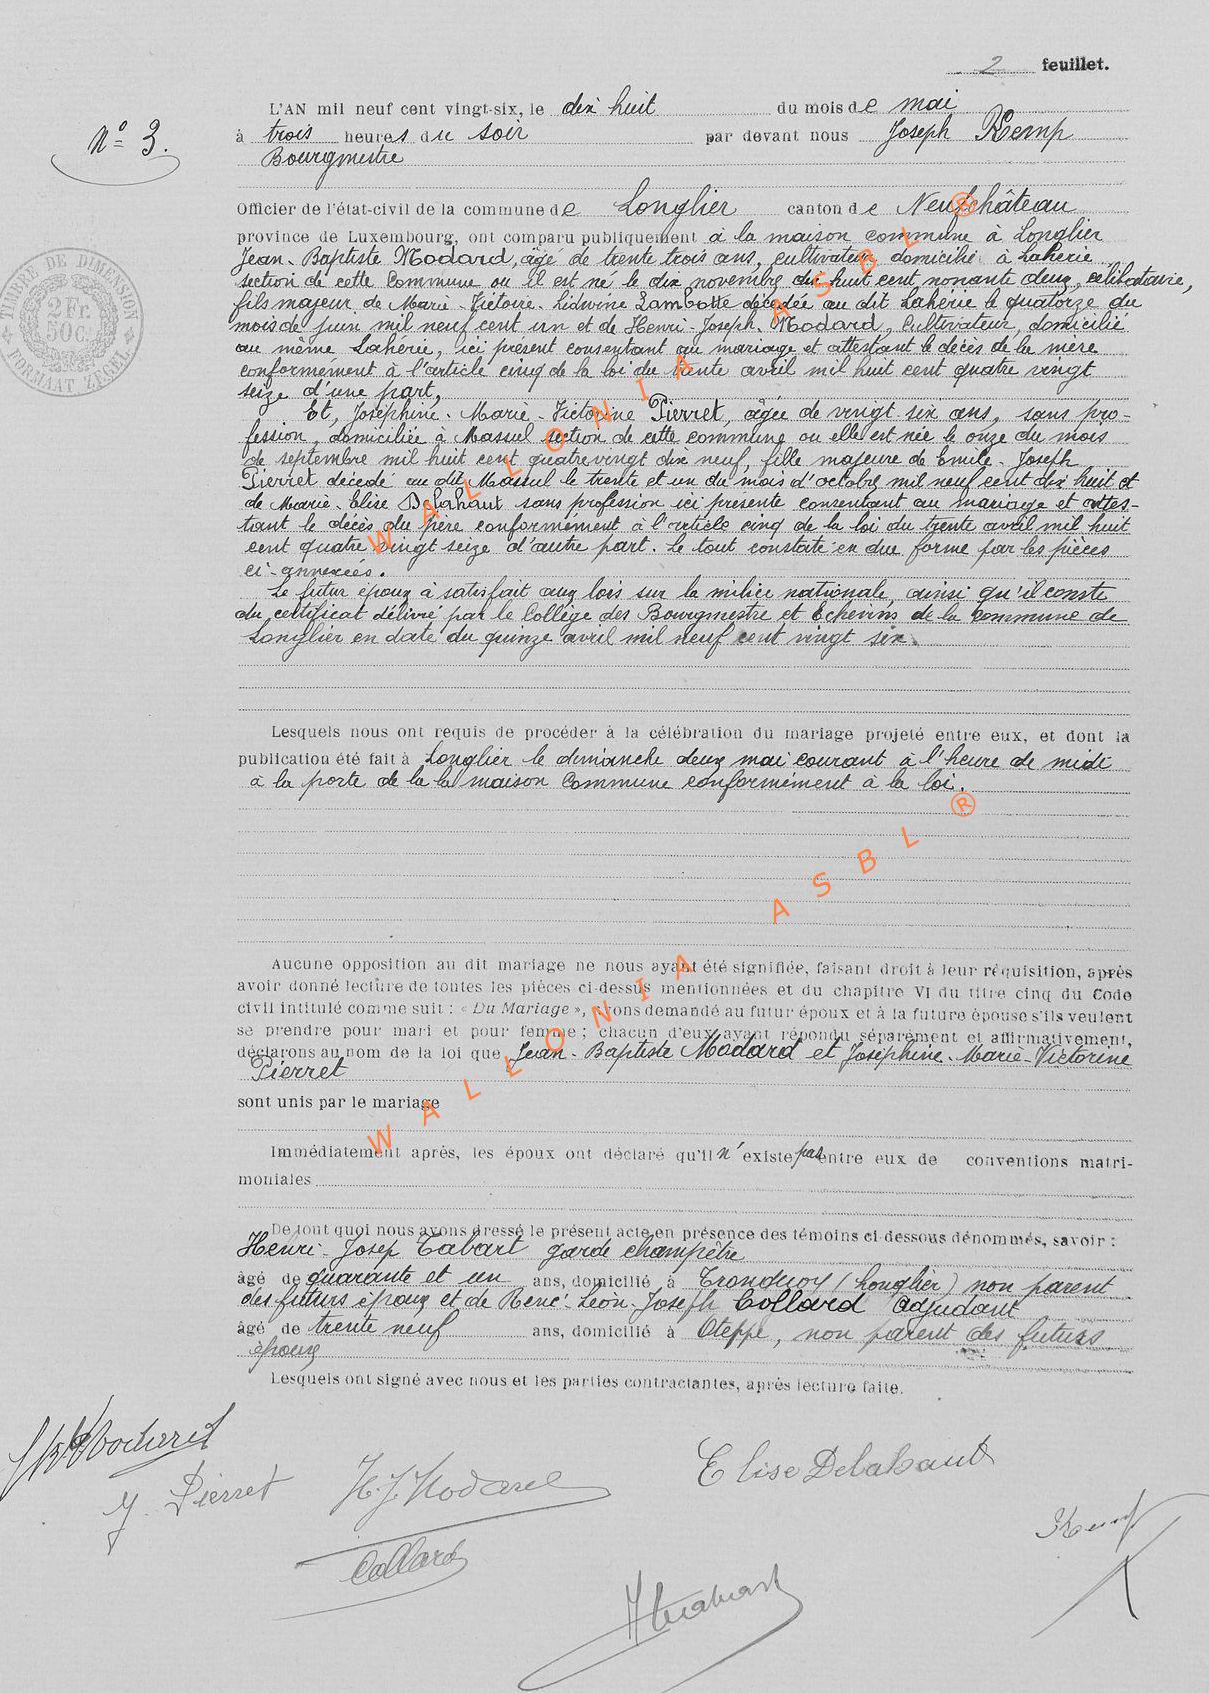 2 feuillet.
N° 3.
L'AN mil neuf cent vingt-six, le dix huit du mois de mai
à trois heures du soir par devant nous Joseph Kemp
Bourgmestre
Officier de l'état-civil de la commune de Longlier canton de Neufchâteau
province de Luxembourg, ont comparu publiquement à la maison commune à Longlier
Jean-Baptiste Modard, âgé de trente trois ans, cultivateur domicilié à Lahérie
section de cette Commune ou il est né le dix novembre dix huit cent nonante deux, célibataire,
fils majeur de Marie-Victoire-Lidwine Lambotte décédée au dit Lahérie le quatorze du
mois de juin mil neuf cent un et de Henri-Joseph Modard, Cultivateur, domicilié
au même Lahérie, ici présent consentant au mariage et attestant le décès de la mère
conformément à l'article cinq de la loi du trente avril mil huit cent quatre vingt
seize d'une part,
Et, Joséphine-Marie-Victorine Pierret, âgée de vingt six ans, sans pro-
fession, domiciliée à Massul section de cette commune ou elle est née le onze du mois
de septembre mil huit cent quatre vingt dix neuf, fille majeure de Emile-Joseph
Pierret décédé au dit Massul le trente et un du mois d'octobre mil neuf cent dix huit et
de Marie-Elise Delahaut sans profession ici présente consentant au mariage et attes-
tant le décès du père conformément à l'article cinq de la loi du trente avril mil huit
cent quatre vingt seize d'autre part. Le tout constaté en due forme par les pièces
ci-annexées.
Le futur époux à satisfait aux lois sur la milice nationale, ainsi qu'il conste
du certificat délivré par le Collège des Bourgmestre et Echevins de la Commune de
Longlier en date du quinze avril mil neuf cent vingt six.
Lesquels nous ont requis de procéder à la célébration du mariage projeté entre eux, et dont la
publication été fait à Longlier le dimanche deux mai courant à l'heure de midi
à la porte de la la maison Commune conformément à la loi.
Aucune opposition au dit mariage ne nous ayant été signifiée, faisant droit à leur réquisition, après
avoir donné lecture de toutes les pièces ci-dessus mentionnées et du chapitre VI du titre cinq du Code
civil intitulé comme suit : « Du Mariage », avons demandé au futur époux et à la future épouse s'ils veulent
se prendre pour mari et pour femme ; chacun d'eux ayant répondu séparément et affirmativement,
déclarons au nom de la loi que Jean-Baptiste Modard et Joséphine-Marie-Victorine
Pierret
sont unis par le mariage
Immédiatement après, les époux ont déclaré qu'il n'existe pas entre eux de conventions matri-
moniales
De tout quoi nous avons dressé le présent acte en présence des témoins ci-dessous dénommés, savoir :
Henri-Josep Tabart garde champêtre
âgé de quarante et un ans, domicilié à Tronquoy (Longlier) non parent
des futurs époux et de René-Léon-Joseph Collard adjudant
âgé de trente neuf ans, domicilié à Oteppe, non parent des futurs
époux
Lesquels ont signé avec nous et les parties contractantes, après lecture faite.
J. Pierret
H.J. Modard
Elise Delahaut
Kemp
Collard
TIMBRE DE DIMENSION
2 Fr.
50 C.
FORMAAT ZEGEL
WALLONIA ASBL ®
WALLONIA ASBL ®